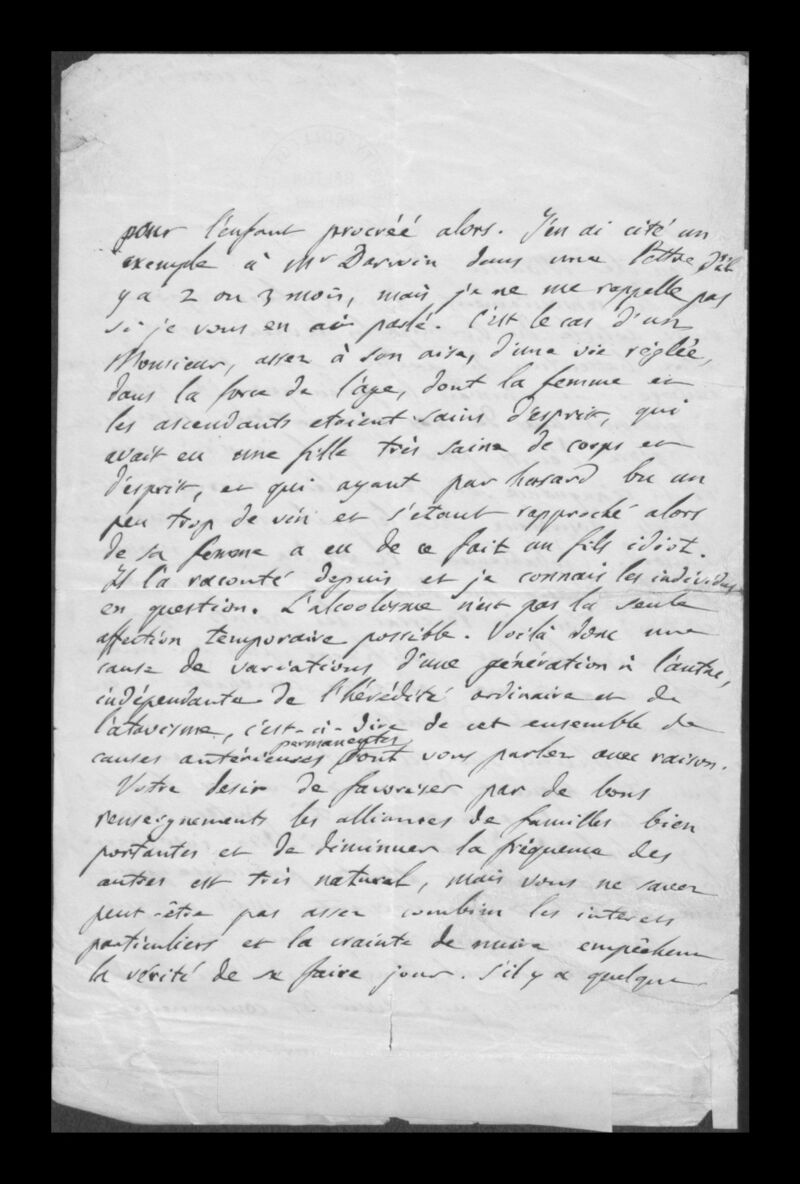 pour l'enfant procréé alors. J'en ai cité un
exemple à Mr Darwin dans une lettre d'il
y a 2 ou 3 mois, mais je ne me rappelle pas
si je vous en ai parlé. C'est le cas d'un
Monsieur, assez à son aise, d'une vie réglée,
dans la force de l'âge, dont la femme et
les ascendants etoient sains d'esprit, qui
avait eu une fille très saine de corps et
d'esprit, et qui ayant par hasard bu un
peu trop de vin et s'etant rapproché alors
de sa femme a eu de ce fait un fils idiot.
Il l'a raconté depuis et je connais les individus
en question. L'alcoolisme n'est pas la seule
affection temporaire possible. Voilà donc une
cause de variations d'une génération à l'autre,
indépendante de l'hérédité ordinaire et de
l'atavisme, c'est-à-dire de cet ensemble de
causes antérieures permanentes dont vous parlez avec raison.
Votre desir de favoriser par de bons
renseignements les alliances de familles bien
portantes et de diminuer la fréquence des
autres est très naturel, mais vous ne savez
peut-être pas assez combien les interets
particuliers et la crainte de nuire empêchent
la vérité de se faire jour. S'il y a quelque